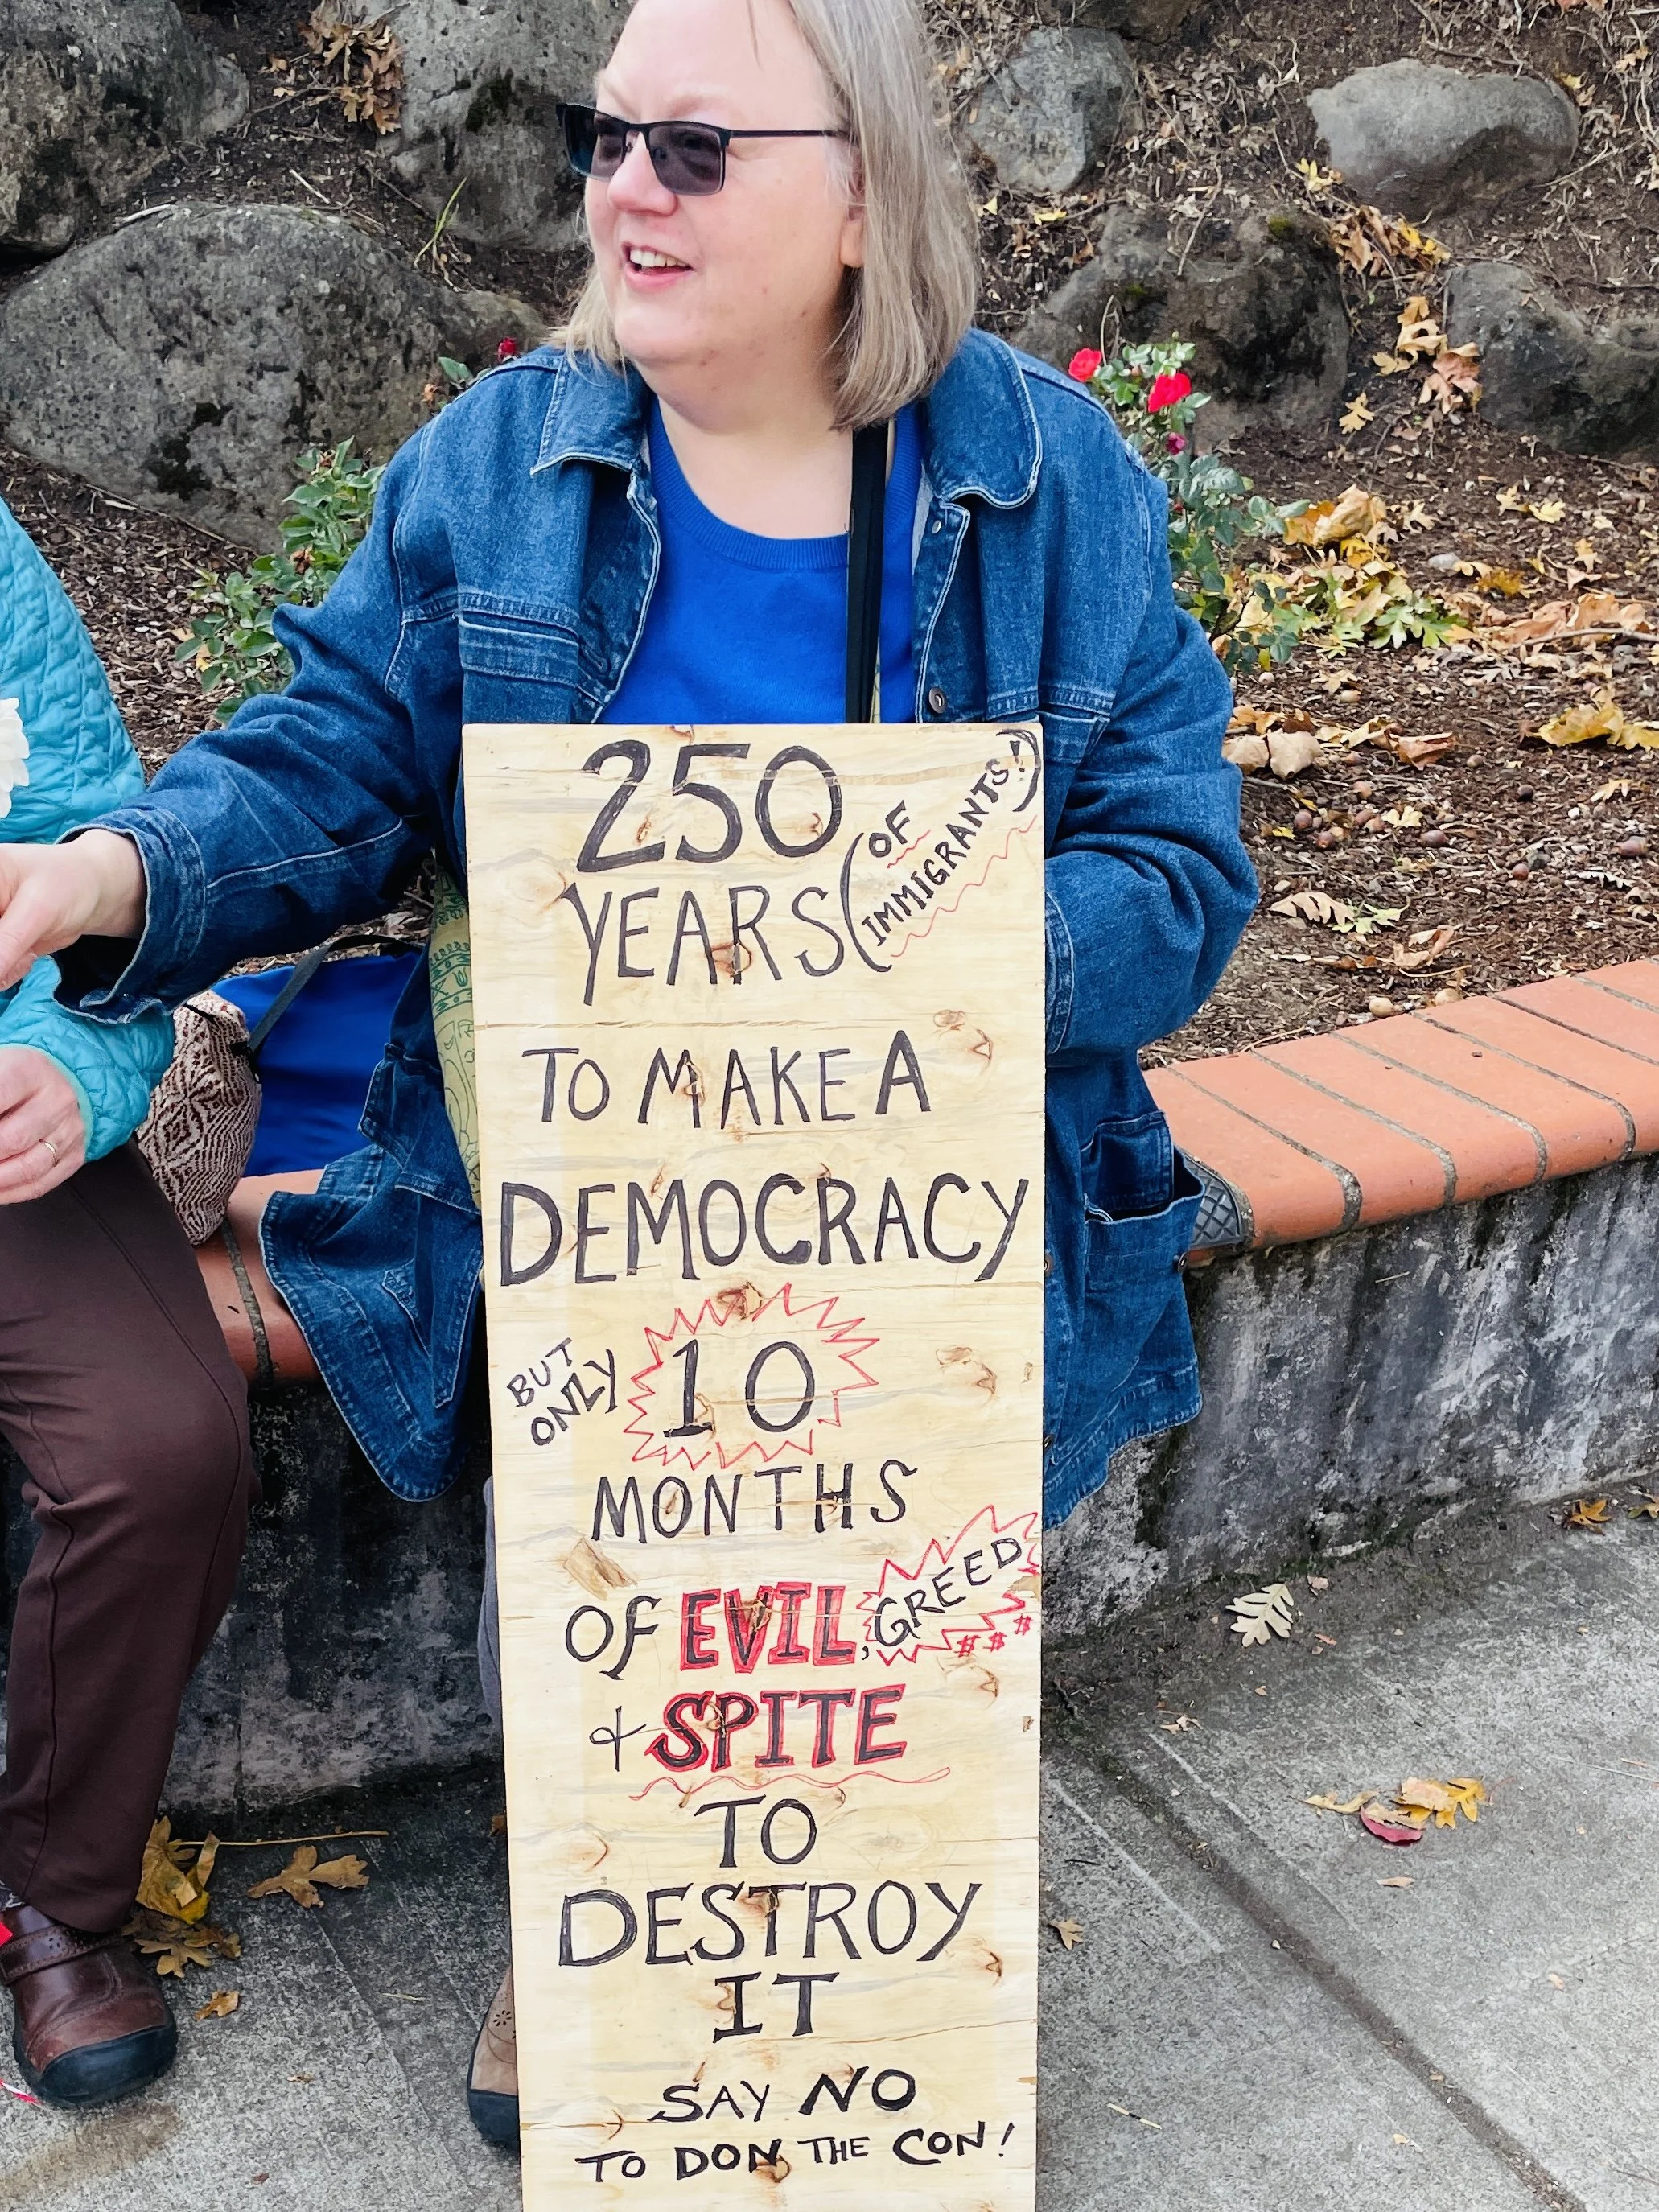 250
YEARS (OF
IMMIGRANTS!)
TO MAKE A
DEMOCRACY
BUT
ONLY 10
MONTHS
OF EVIL, GREED
$ $ $
& SPITE
TO
DESTROY
IT
SAY NO
TO DON THE CON!